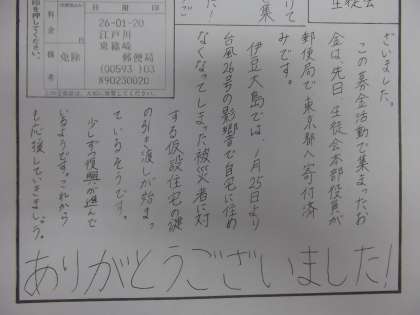 集
生徒会
ざいました。
この募金活動で集まったお
金は先日、生徒会本部役員が
郵便局で東京都へ寄付済
みです。
伊豆大島では、1月25日より
台風26号の影響で自宅に住め
なくなってしまった被災者に対
する仮設住宅の鍵
の引き渡しが始まっ
ているそうです。
少しずつ復興が進んで
いるようです。これから
も応援していきましょう。
ありがとうございました!
印を押してください。
料金
備考
免除
日附印
26-01-20
江戸川
東篠崎
郵便局
(00593)03
N90230020